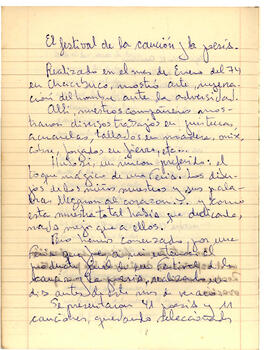 El festival de la canción y la poesía.
Realizado en el mes de Enero del 74
en Chacabuco, mostró arte, supera-
ción del hombre ante la adversidad.
Allí, nuestros compañeros mos-
traron diversos trabajos en pinturas,
acuarelas, tallados en madera, onix,
cobre, forjados en fierro, etc...
Hubo un rincón preferido: el
toque mágico de una feria. Los dibu-
jos de los niños nuestros y sus pala-
bras llegaron al corazón. Y como
esta muestra total había que dedicarla,
nada mejor que a ellos.
Pero hemos comenzado por una
de la
canción y la poesía, realizado
días antes de este mes de
Se presentaron 41 poesías y 11
canciones, quedando seleccionados